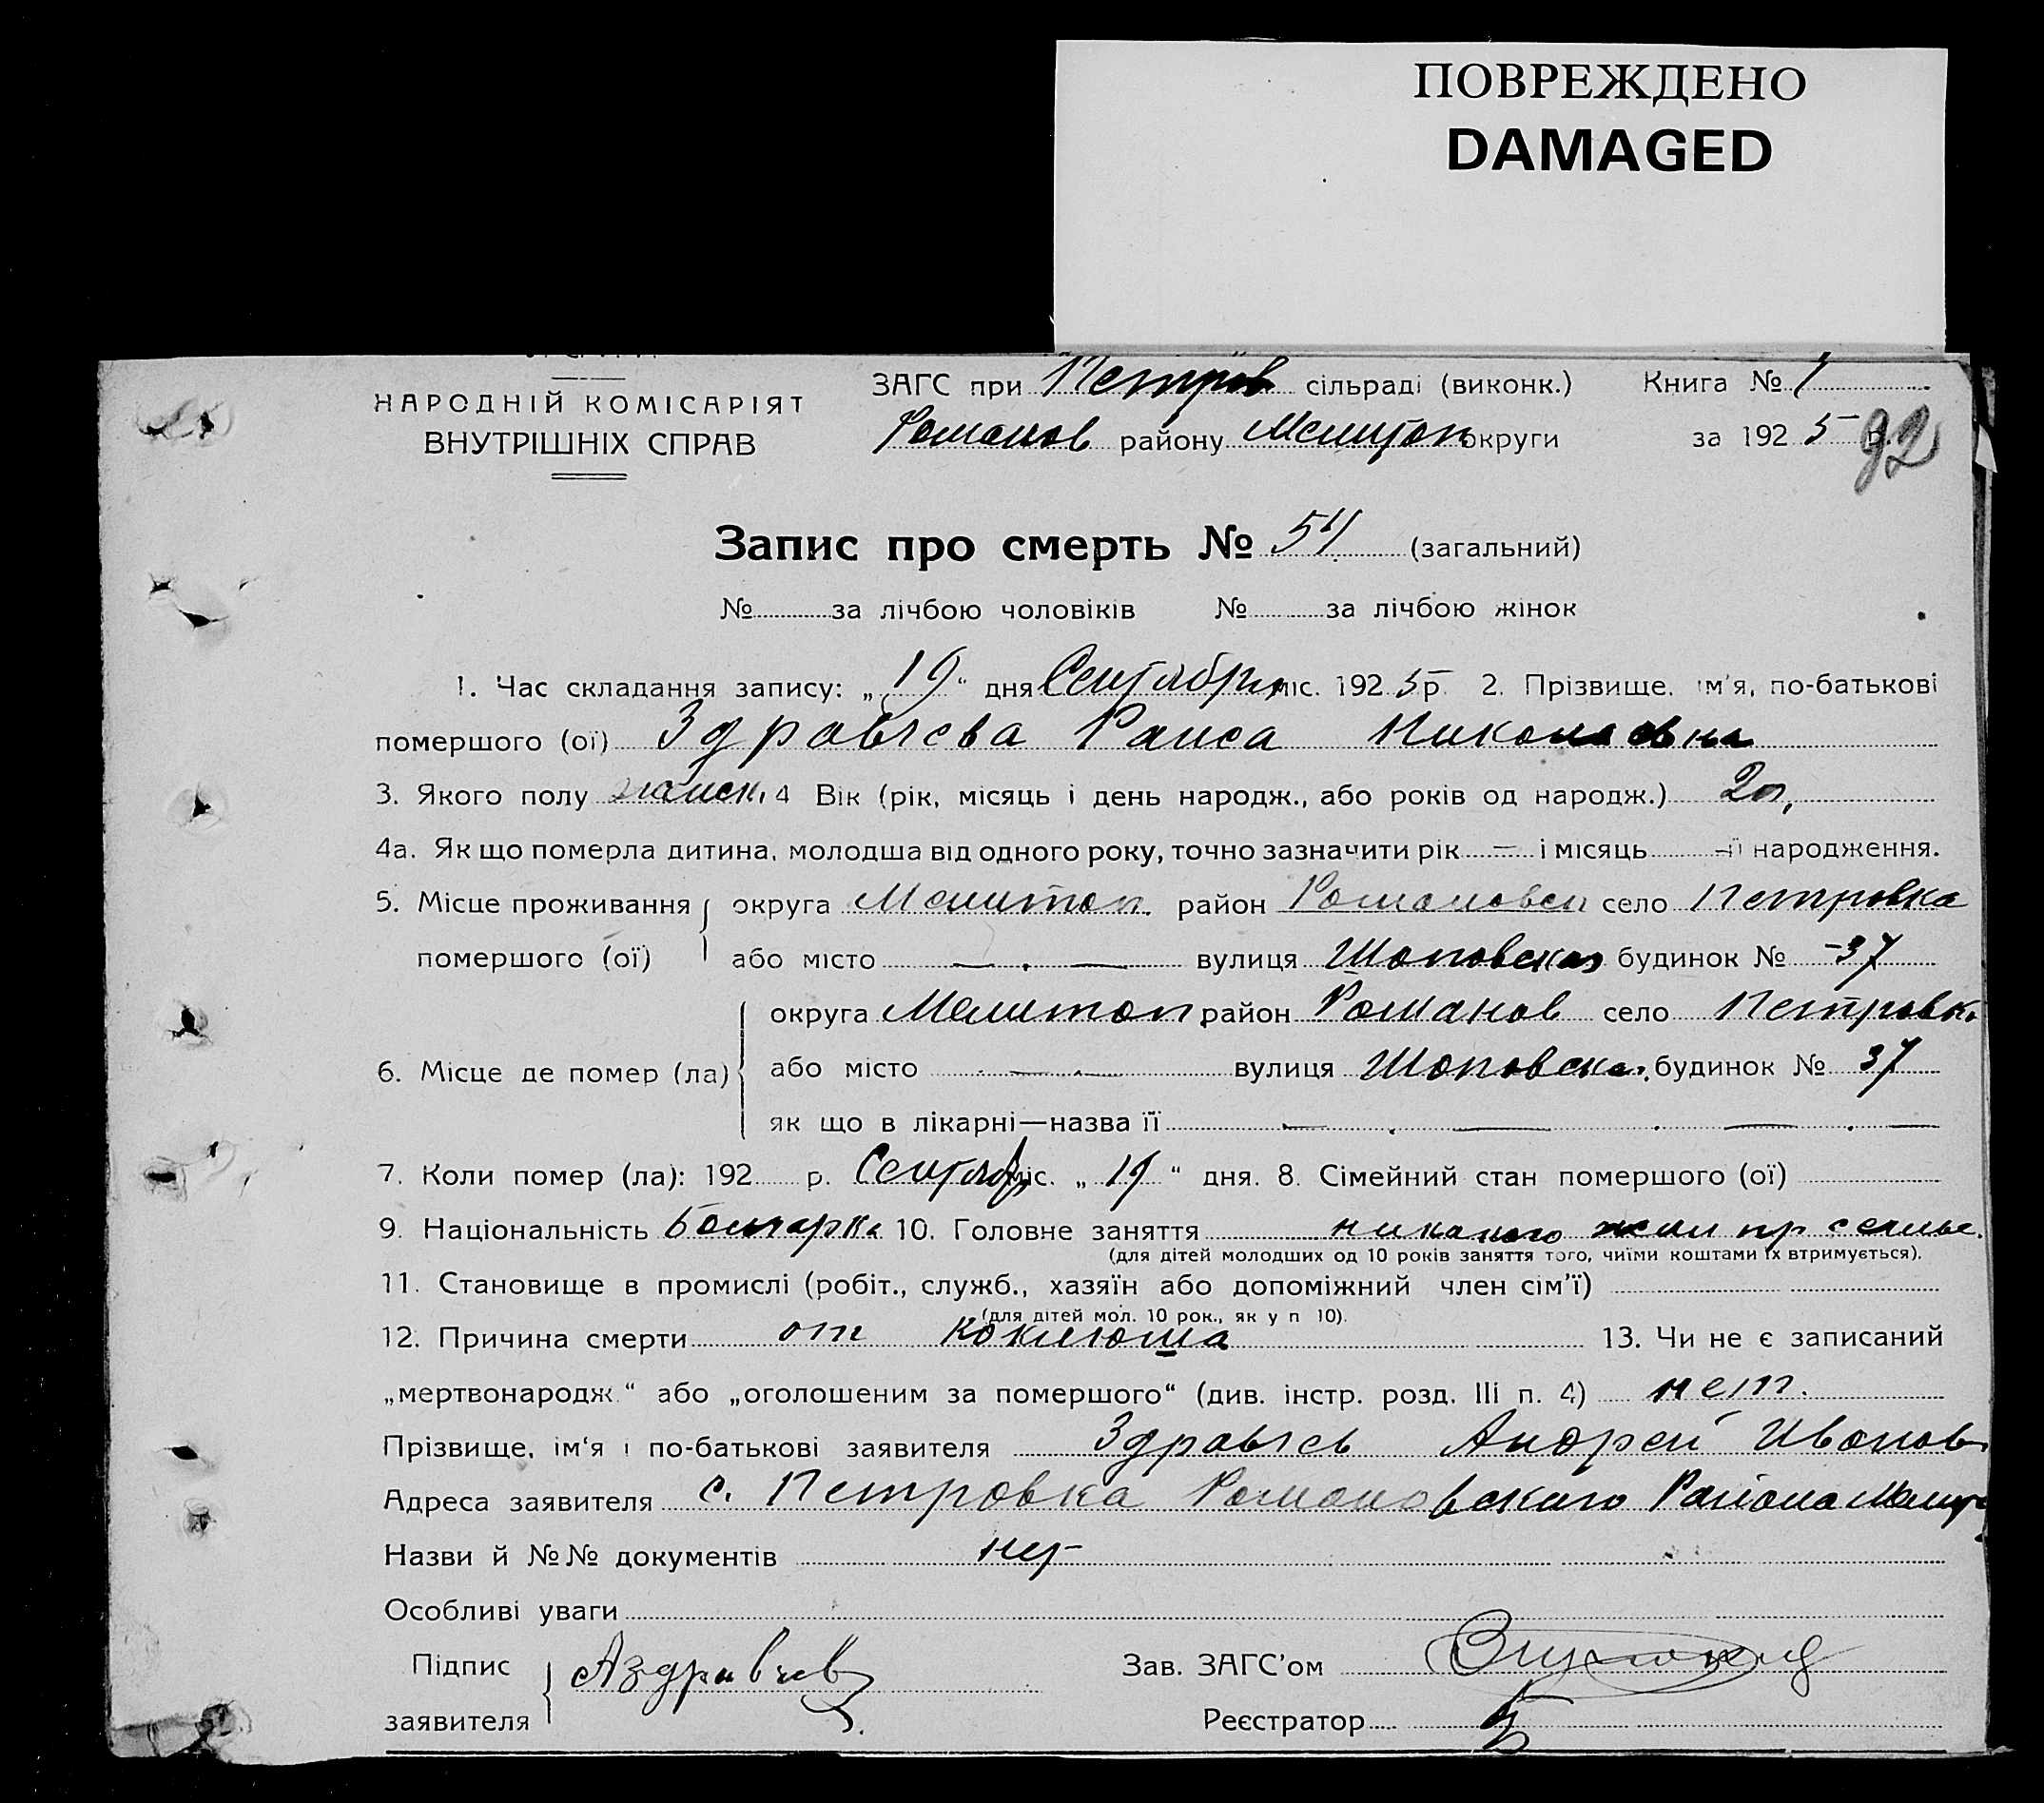 ПОВРЕЖДЕНО
DAMAGED
НАРОДНІЙ КОМІСАРІЯТ
ВНУТРІШНІХ СПРАВ
ЗАГС при Петров сільраді (виконк.) Книга № 1
Романов району Мелитоп округи за 1925 р.
92
Запис про смерть № 54 (загальний)
№ за лічбою чоловіків № за лічбою жінок
1. Час складання запису: „19“ дня Сентября міс. 1925 р. 2. Прізвище, ім'я, по-батькові
помершого (ої) Здравчева Раиса Николаевна
3. Якого полу 4 Вік (рік, місяць і день народж., або років од народж.) 2 г.
4а. Як що померла дитина, молодша від одного року, точно зазначити рік — і місяць — її народження.
5. Місце проживання округа Мелитоп. район Романовск село Петровка
помершого (ої) або місто — . — вулиця Шоповская будинок № 37
округа Мелитоп. район Романов село Петровка
6. Місце де помер (ла) або місто — вулиця Шоповска. будинок № 37
як що в лікарні—назва її — . — . — . —
7. Коли помер (ла): 192 р. Сентябр міс. „19“ дня. 8. Сімейний стан помершого (ої)
9. Національність Болгарка 10. Головне заняття никакого жил пр семье.
(для дітей молодших од 10 років заняття того, чиїми коштами їх втримується).
11. Становище в промислі (робіт., служб., хазяїн або допоміжний член сім'ї)
(для дітей мол. 10 рок., як у п 10).
12. Причина смерти от коклюша 13. Чи не є записаний
„мертвонародж.“ або „оголошеним за помершого“ (див. інстр. розд. III п. 4) нет.
Прізвище, ім'я і по-батькові заявителя Здравчев Андрей Иванов
Адреса заявителя с. Петровка Романовского Района Мелит
Назви й №№ документів нет
Особливі уваги
Підпис
заявителя АЗдравчев
Зав. ЗАГС'ом
Реєстратор